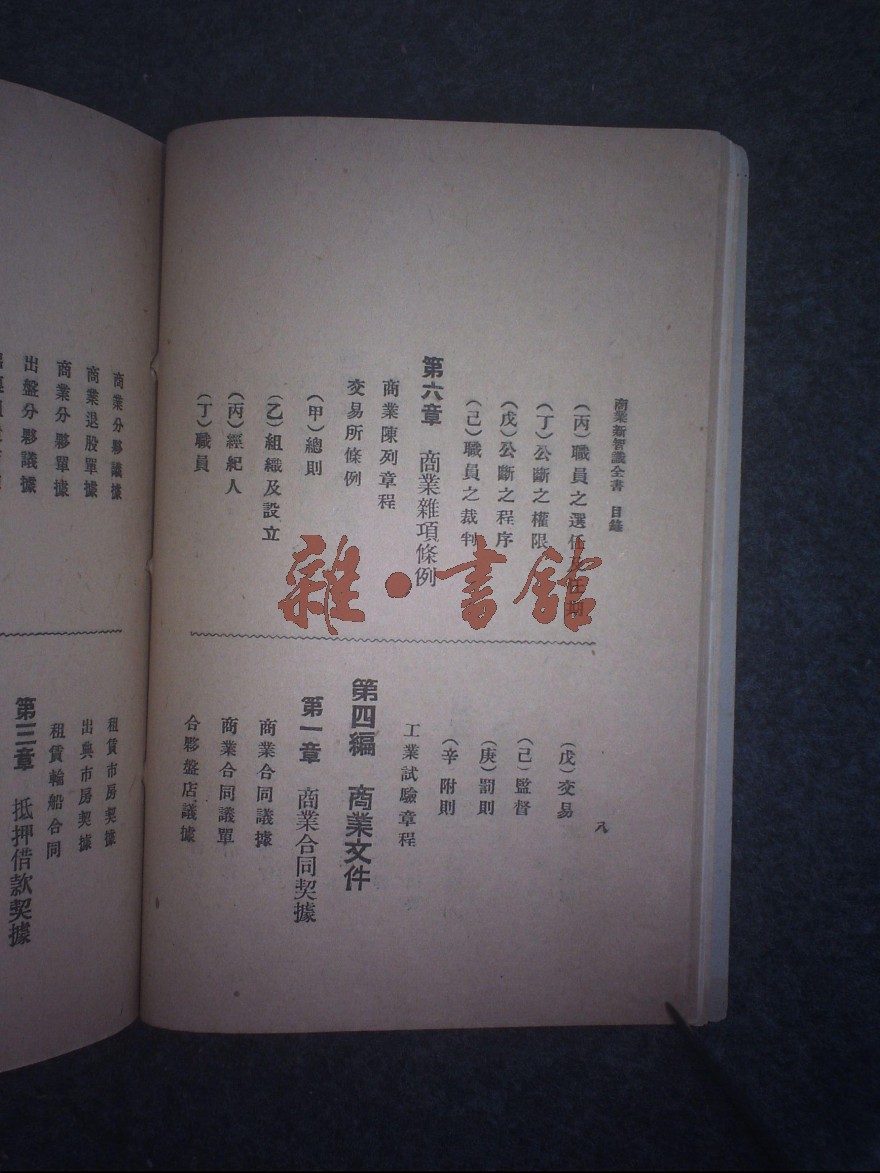 商業新智識全書 目錄
(丙)職員之選任及任期
(丁)公斷之權限
(戊)公斷之程序
(己)職員之裁判
第六章 商業雜項條例
商業陳列章程
交易所條例
(甲)總則
(乙)組織及設立
(丙)經紀人
(丁)職員
八
(戊)交易
(己)監督
(庚)罰則
(辛)附則
工業試驗章程
第四編 商業文件
第一章 商業合同契據
商業合同議據
商業合同議單
合夥盤店議據
商業分夥議據
商業退股單據
商業分夥單據
出盤分夥議據
租賃市房契據
出典市房契據
租賃輪船合同
第三章 抵押借款契據
雜·書館